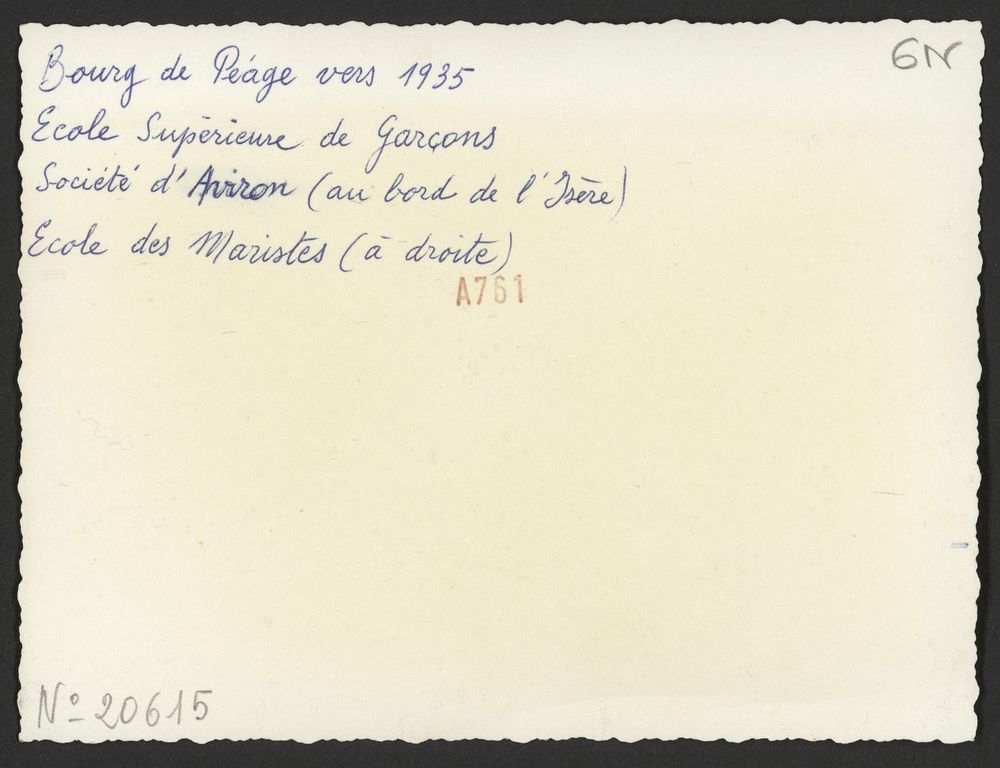 6N
Bourg de Péage vers 1935
Ecole Supérieure de Garçons
Société d'Aviron (au bord de l'Isère)
Ecole des Maristes (à droite)
A761
Nº 20615